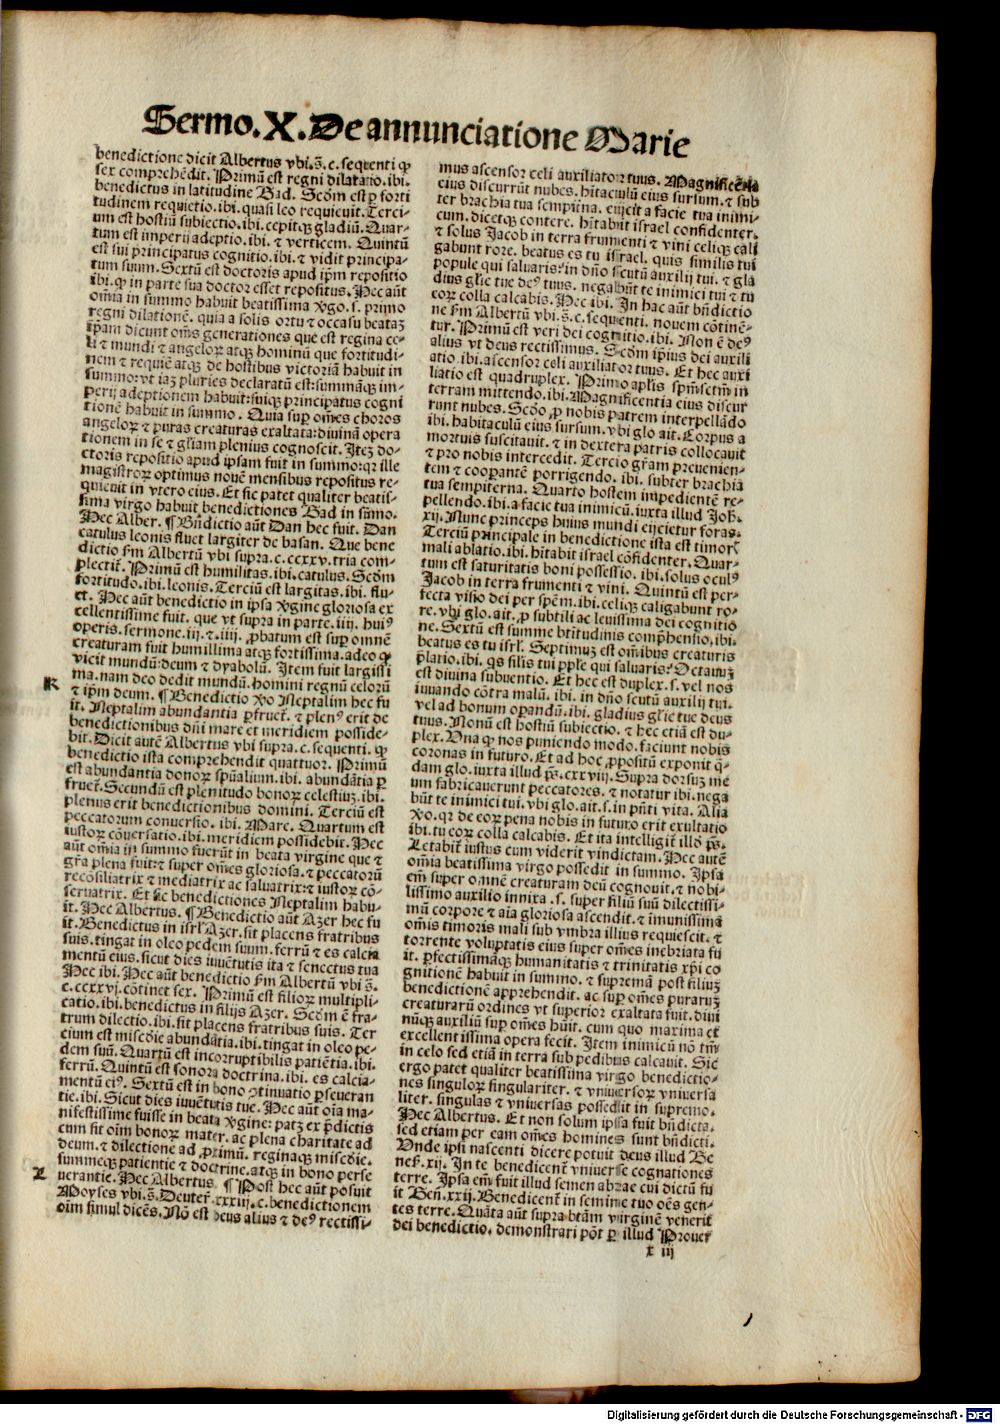 Sermo.X.De annunciatione Marie
benedictione dicit Albertus vbi.s̄.c.sequenti ꝙ
sex comprehēdit. Primū est regni dilatatio.ibi.
benedictus in latitudine Gad. Scdm̄ est ꝑ forti
tudinem requietio.ibi.quasi leo requieuit. Terci-
um est hostiū subiectio.ibi.cepitqꝫ gladiū. Quar-
tum est imperij adeptio.ibi.⁊ verticem. Quintū
est sui principatus cognitio.ibi.⁊ vidit principa-
tum suum. Sextū est doctoris apud ip̄m repositio
ibi.ꝙ in parte sua doctor esset repositus. Hec aūt
oīa in summo habuit beatissima v̄go.s. primo
regni dilationē. quia a solis ortu ⁊ occasu beataꝫ
ip̄am dicunt om̄s generationes que est regina ce-
li ⁊ mundi ⁊ angeloꝝ atqꝫ hominū que fortitudi-
nem ⁊ requiē atqꝫ de hostibus victoriā habuit in
summo:vt iaꝫ pluries declaratū est:summāqꝫ im-
perij adeptionem habuit:suiqꝫ principatus cogni
tionē habuit in summo. Quia suꝑ om̄es choros
angeloꝝ ⁊ puras creaturas exaltata:diuinā opera
tionem in se ⁊ gl̄iam plenius cognoscit. Iteꝫ do-
ctoris repositio apud ipsam fuit in summo:qꝛ ille
magistroꝝ optimus nouē mensibus repositus re-
quieuit in vtero eius. Et sic patet qualiter beatis-
sima virgo habuit benedictiones Gad in sūmo.
Hec Alber. ¶ Bn̄dictio aūt Dan hec fuit. Dan
catulus leonis fluet largiter de basan. Que bene
dictio s̄m Albertū vbi supra.c.ccxxv.tria com-
plectit᷑. Primū est humilitas.ibi.catulus. Scdm̄
fortitudo.ibi.leonis. Terciū est largitas.ibi. flu-
et. Hec aūt benedictio in ipsa v̄gine gloriosa ex
cellentissime fuit. que vt supra in parte.iiij. huiꝰ
operis.sermone.iij.⁊.iiij.ꝓbatum est suꝑ omnē
creaturam fuit humillima atqꝫ fortissima.adeo ꝙ
vicit mundū:deum ⁊ dyabolū. Item fuit largissi
ma.nam deo dedit mundū.homini regnū celorū
K
⁊ ip̄m deum. ¶ Benedictio v̄o Neptalim hec fu
it. Neptalim abundantia ꝑfruet᷑.⁊ plenꝰ erit de
benedictionibus dn̄i mare et meridiem posside-
bit. Dicit autē Albertus vbi supra.c.sequenti.ꝙ
benedictio ista comprehendit quattuor. Primū
est abundantia donoꝝ spūalium.ibi. abundātia ꝑ
fruet᷑. Secundū est plenitudo bonoꝝ celestiuꝫ.ibi.
plenus erit benedictionibus domini. Terciū est
peccatorum conuersio. ibi. Mare. Quartum est
iustoꝝ cōuersatio.ibi.meridiem possidebit. Hec
aūt om̄ia in summo fuerūt in beata virgine que ⁊
gr̄a plena fuit:⁊ super om̄es gloriosa.⁊ peccatorū
recōsiliatrix ⁊ mediatrix ac saluatrix:⁊ iustoꝝ cō-
seruatrix. Et sic benedictiones Neptalim habu-
it. Hec Albertus. ¶ Benedictio aūt Azer hec fu
it. Benedictus in isrl̄ Azer.sit placens fratribus
suis.tingat in oleo pedem suum.ferrū ⁊ es calcia
mentū eius.sicut dies iuuētutis ita ⁊ senectus tua
Hec ibi. Hec aūt benedictio s̄m Albertū vbi s̄.
c.ccxxvj.cōtinet sex. Primū est filioꝝ multipli-
catio.ibi.benedictus in filijs Azer. Scdm̄ ē fra-
trum dilectio.ibi.sit placens fratribus suis. Ter
cium est misc̄die abundātia.ibi.tingat in oleo pe-
dem suū. Quartū est incorruptibilis patiētia.ibi.
ferrū. Quintū est sonora doctrina.ibi. es calcia-
mentū eiꝰ. Sextū est in bono ꝯtinuatio ꝑseueran
tie.ibi. Sicut dies iuuētutis tue. Hec aūt oīa ma-
nifestissime fuisse in beata v̄gine:patꝫ ex p̄dictis
cum sit oīm bonoꝝ mater. ac plena charitate ad
deum.⁊ dilectione ad ꝓximū. reginaqꝫ misc̄die.
summeqꝫ patientie ⁊ doctrine.atqꝫ in bono perse
L
uerantie. Hec Albertus. ¶ Post hec aūt posuit
Moyses vbi.s̄.Deuter̄.xxxiij.c.benedictionem
oīm simul dicēs. Nō est deus alius ⁊ deꝰ rectissi-
mus ascensor celi auxiliator tuus. Magnificētia
eius discurrūt nubes. hītaculū eius sursum.⁊ sub
ter brachia tua sempiīna. eijciet a facie tua inimi-
cum.dicetqꝫ contere. hītabit israel confidenter.
⁊ solus Jacob in terra frumenti ⁊ vini celiqꝫ cali
gabunt rore. beatus es tu israel. quis similis tui
popule qui saluaris:in dn̄o scutū auxilij tui.⁊ gla
dius gl̄ie tue deꝰ tuus. negabūt te inimici tui ⁊ tu
eoꝝ colla calcabis. Hec ibi. In hac aūt bn̄dictio
ne s̄m Albertū vbi.s̄.c.sequenti. nouem cōtinē-
tur. Primū est veri dei cognitio.ibi. Non ē deꝰ
alius vt deus rectissimus. Scdm̄ ip̄ius dei auxili
atio.ibi.ascensor celi auxiliator tuus. Et hec auxi
liatio est quadruplex. Primo apl̄is sp̄msctm̄ in
terram mittendo.ibi.Magnificentia eius discur
runt nubes. Scdo ꝓ nobis patrem interpellādo
ibi.habitaculū eius sursum.vbi glo.ait. Corpus a
mortuis suscitauit.⁊ in dextera patris collocauit
⁊ pro nobis intercedit. Tercio gr̄am preuenien-
tem ⁊ cooꝑantē porrigendo. ibi. subter brachia
tua sempiterna. Quarto hostem impedientē re-
pellendo.ibi.a facie tua inimicū.iuxta illud Joh̄.
xij.Nunc princeps huius mundi eijcietur foras.
Terciū principale in benedictione ista est timoꝝ
mali ablatio.ibi.hītabit israel cōfidenter. Quar-
tum est saturitatis boni possessio. ibi.solus oculꝰ
Jacob in terra frumenti ⁊ vini. Quintū est per-
fecta visio dei per spēm.ibi.celiqꝫ caligabunt ro-
re.vbi glo.ait.ꝓ subtili ac leuissima dei cognitio
ne. Sextū est summe btītudinis comp̄hensio.ibi.
beatus es tu isrl̄. Septimuꝫ est om̄ibus creaturis
p̄latio.ibi.qs̄ silis tui pp̄le qui saluaris? Octauuꝫ
est diuina subuentio. Et hec est duplex.s̄.vel nos
iuuando cōtra malū. ibi. in dn̄o scutū auxilij tui.
vel ad bonum operandū.ibi.gladius gl̄ie tue deus
tuus. Nonū est hostiū subiectio.⁊ hec etiā est du-
plex. Vna ꝙ nos puniendo modo.faciunt nobis
coronas in futuro. Et ad hoc ꝓpositū exponit q̄-
dam glo.iuxta illud ps̄.cxxviij. Supra dorsuꝫ me
um fabricauerunt peccatores.⁊ notatur ibi.nega
būt te inimici tui.vbi glo.ait.s.in p̄nti vita. Alia
v̄o.qꝛ de eoꝝ pena nobis in futuro erit exultatio
ibi.tu eoꝝ colla calcabis. Et ita intelligit᷑ illō ps̄.
Letabit᷑ iustus cum viderit vindictam. Hec autē
om̄ia beatissima virgo possedit in summo. Ipsa
em̄ super omnē creaturam deū cognouit.⁊ nobi-
lissimo auxilio innixa .s. super filiū suū dilectissi-
mū corpore ⁊ aīa gloriosa ascendit.⁊ imunissima
om̄is timoris mali sub vmbra illius requiescit.⁊
torrente voluptatis eius super om̄es inebriata fu
it. ꝑfectissimaqꝫ humanitatis ⁊ trinitatis xp̄i co
gnitionē habuit in summo.⁊ supremā post filiuꝫ
benedictionē apprehendit. ac suꝑ om̄es puraruꝫ
creaturarū ordines vt superior exaltata fuit. diui
nūqꝫ auxiliū suꝑ om̄es hūit. cum quo maxima et
excellentissima opera fecit. Item inimicū nō tm̄
in celo sed etiā in terra sub pedibus calcauit. Sic
ergo patet qualiter beatissima virgo benedictio-
nes singuloꝝ singulariter.⁊ vniuersoꝝ vniuersa
liter. singulas ⁊ vniuersas possedit in supremo.
Hec Albertus. Et non solum ipsa fuit bn̄dicta.
sed etiam per eam om̄es homines sunt bn̄dicti.
Vnde ipsi nascenti dicere potuit deus illud Ge
nes̄.xij. In te benedicent᷑ vniuerse cognationes
terre. Ipsa em̄ fuit illud semen abrae cui dictū fu
it Gen̄.xxij. Benedicent᷑ in semine tuo oēs gen-
tes terre. Quāta aūt supra btām virginē venerit
dei benedictio. demonstrari pōt ꝑ illud Prouer̄
x iij
Digitalisierung gefördert durch die Deutsche Forschungsgemeinschaft - DFG